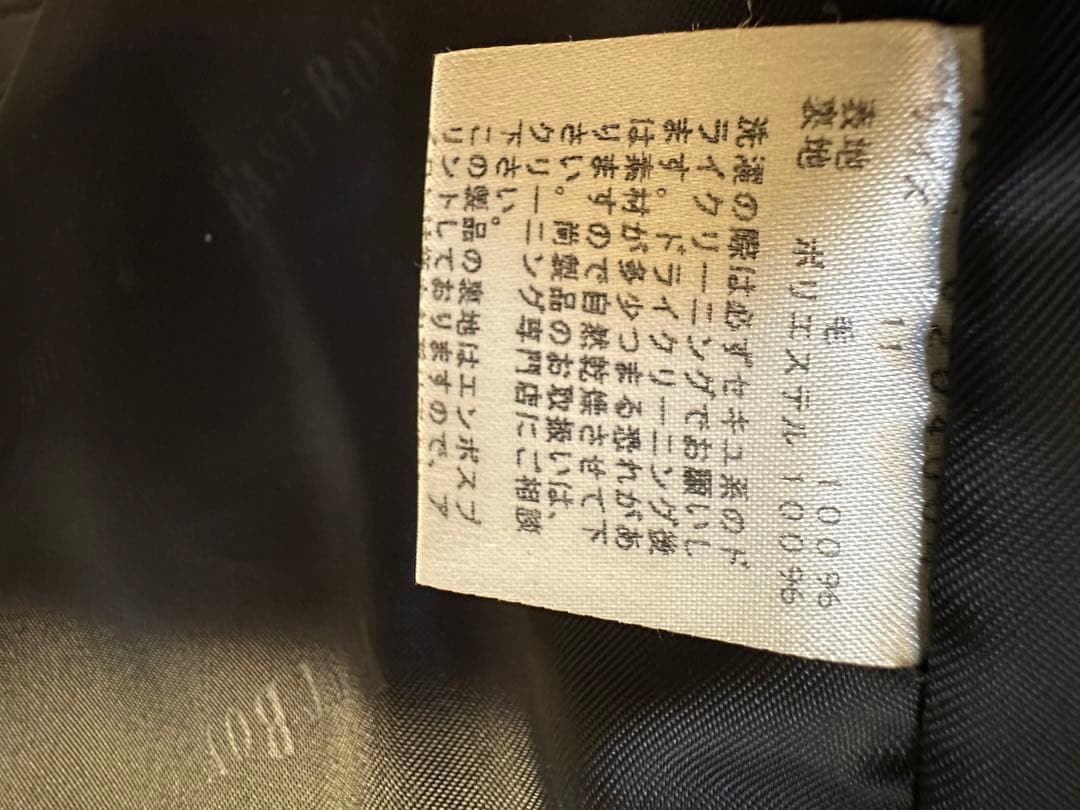 11
表地 毛 100%
裏地 ポリエステル 100%
洗濯の際は必ずセキユ系のド
ライクリーニングでお願いし
ます。ドライクリーニング後
は素材が多少つまる恐れがあ
りますので自然乾燥させて下
さい。尚製品のお取扱いは、
クリーニング専門店にご相談
下さい。
この製品の裏地はエンボスプ
リントしておりますので、ア
EAST BOY